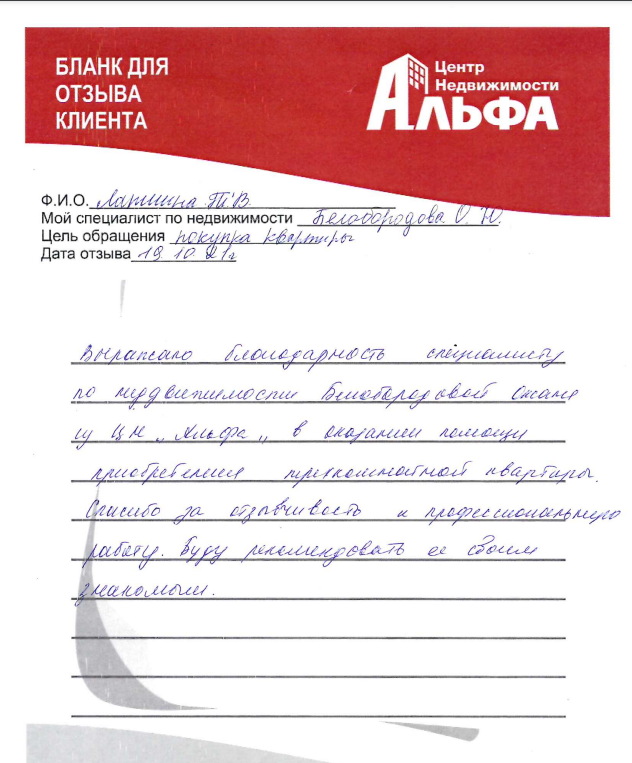 БЛАНК ДЛЯ
ОТЗЫВА
КЛИЕНТА
Центр
Недвижимости
АЛЬФА
Ф.И.О. Лапшина Т.В
Мой специалист по недвижимости Белобородова О. Ю.
Цель обращения покупка квартиры
Дата отзыва 19.10.21г
Выражаю благодарность специалисту
по недвижимости Белобородовой Оксане
из ЦН „Альфа„ в оказании помощи
приобретения трехкомнатной квартиры.
Спасибо за отзывчивость и профессиональную
работу. Буду рекомендовать ее своим
знакомым.